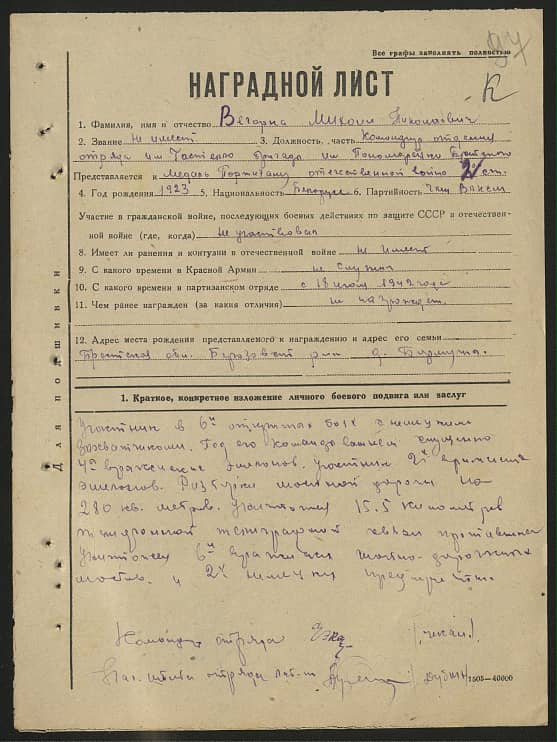 97
Все графы заполнять полностью
К
НАГРАДНОЙ ЛИСТ
1. Фамилия, имя и отчество Вегорка Михаил Николаевич
2. Звание Не имеет 3. Должность, часть Командир отделения
отряда им Гастелло бригада им Пономаренко Брестской
Представляется к медаль Партизану отечественной войны 2 ст.
4. Год рождения 1923 5. Национальность Белорусс 6. Партийность Член ВЛКСМ
Участие в гражданской войне, последующих боевых действиях по защите СССР в отечествен-
ной войне (где, когда) Не участвовал
8. Имеет ли ранения и контузии в отечественной войне не имеет
9. С какого времени в Красной Армии не служил
10. С какого времени в партизанском отряде с 18 1942 года
11. Чем ранее награжден (за какия отличия) не награжден.
12. Адрес места рождения представляемого к награждению и адрес его семьи
Брестская обл. Березовский р-н д.
Для подшивки
1. Краткое, конкретное изложение личного боевого подвига или заслуг
Участник в 6и открытых боях с немецкими
захватчиками. Под его командованием спущено
4 вражеских эшелонов. участник 2х
эшелонов. Разбурки дороги на
280 кв. метров. Уничтожил 15.5 километров
телеграфной связи противника
Уничтожил 6и вражеских дорожных
мостов. и 2х немецких
Командир отряда /Чекан/
Нач. штаба отряда лей-т /Дубин/
1505—40000